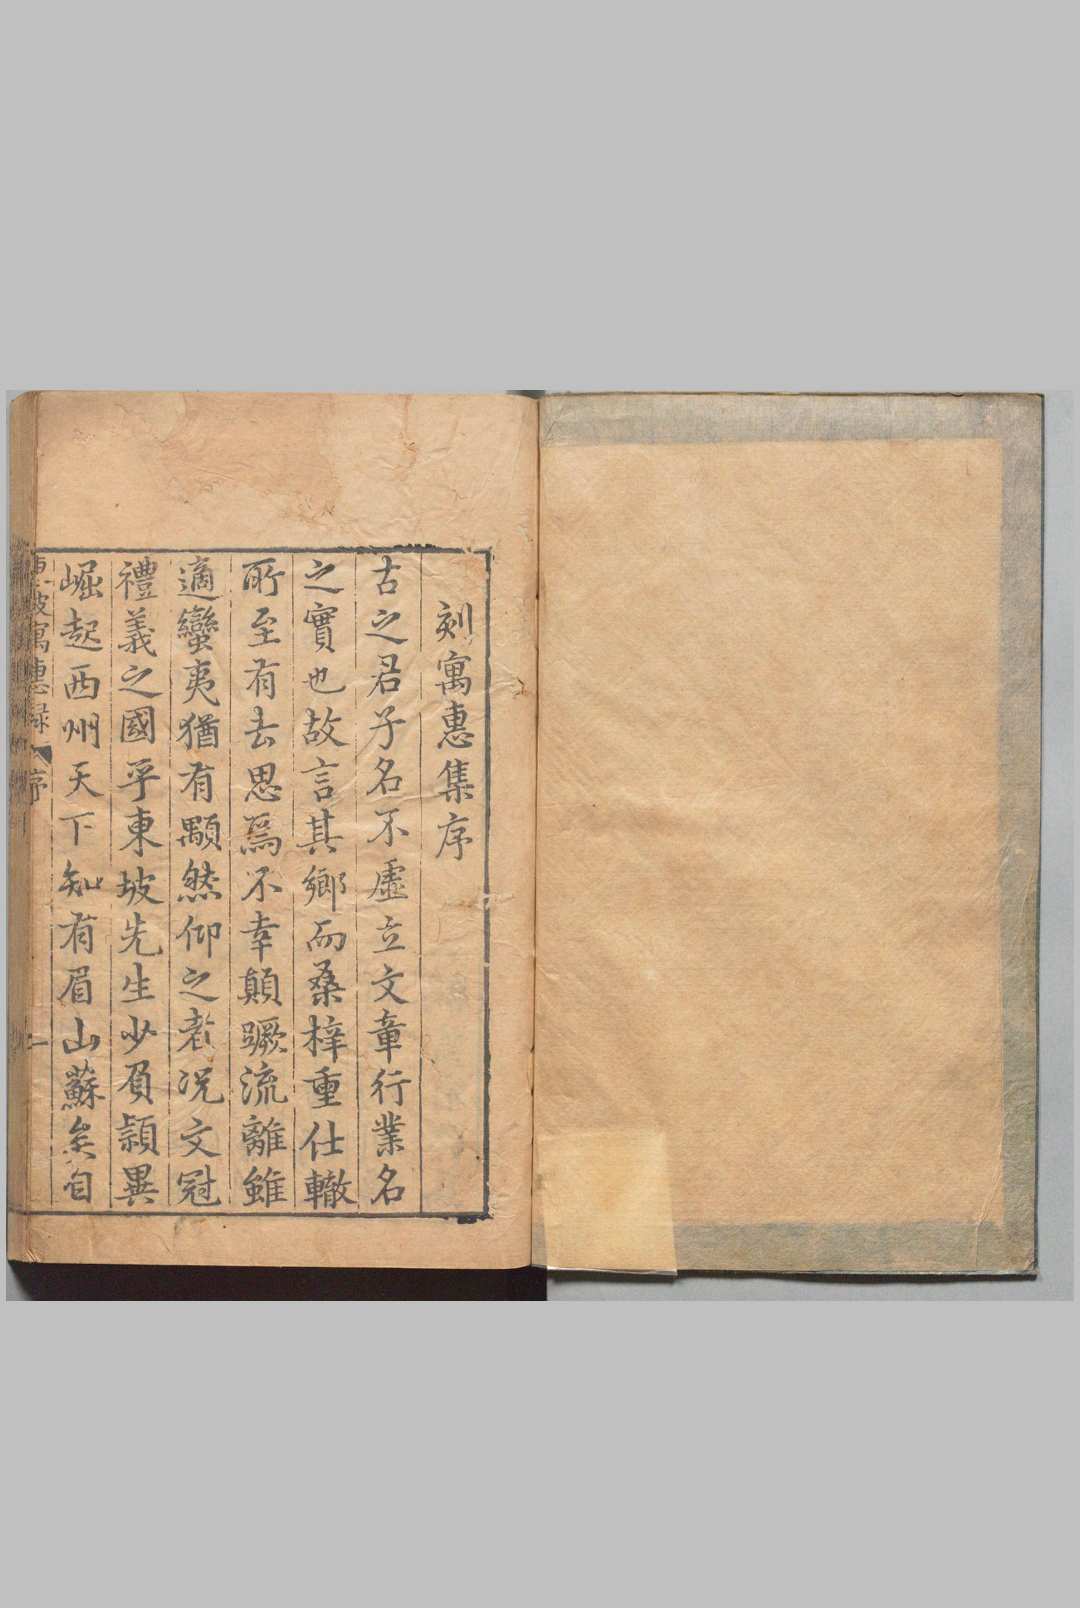 刻寓惠集序
古之君子名不虛立文章行業名
之實也故言其鄉而桑梓重仕轍
所至有去思焉不幸顛蹶流離雖
適蠻夷猶有顒然仰之者况文冠
禮義之國乎東坡先生少負穎異
崛起西州天下知有眉山蘇矣自
坡寓惠録 序 一